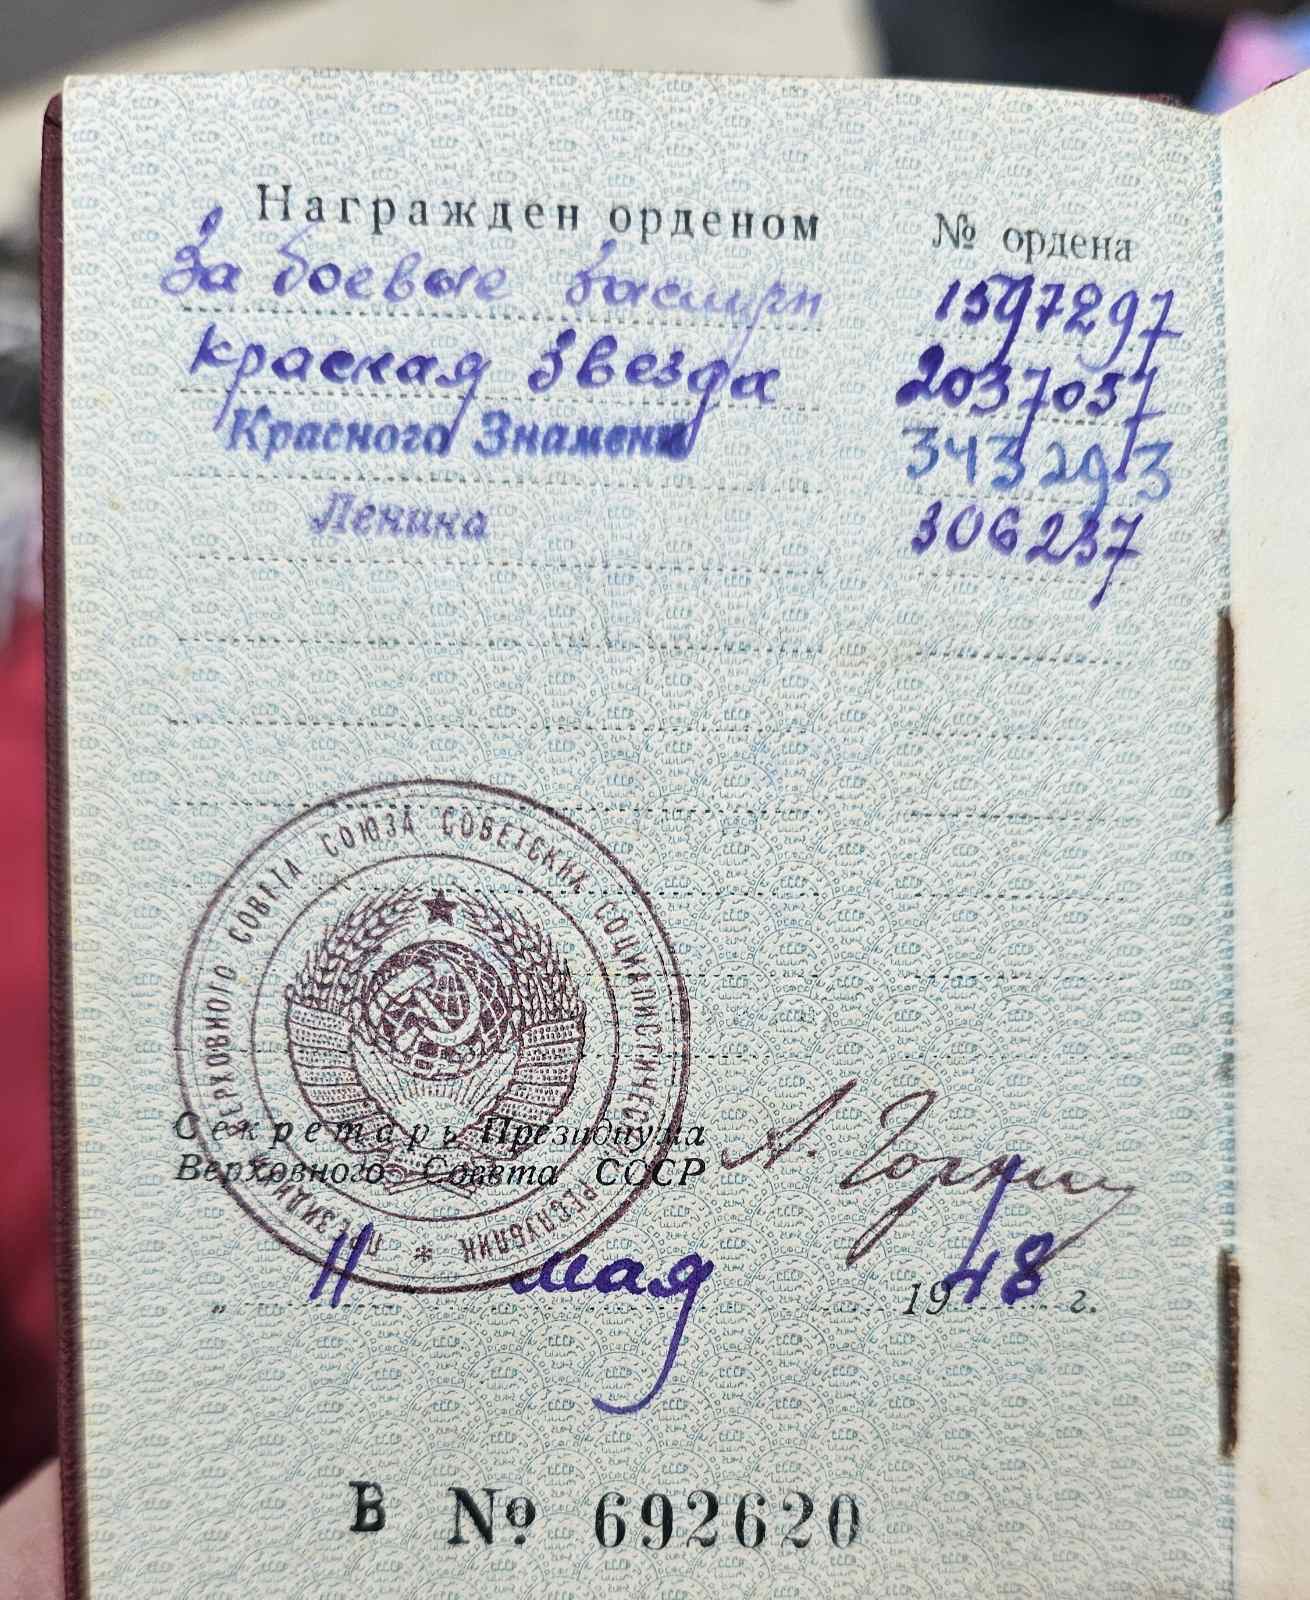 Награжден орденом № ордена
За боевые заслуги 1597297
Красная Звезда 2037057
Красного Знамени 343293
Ленина 306237
ПРЕЗИДИУМ ВЕРХОВНОГО СОВЕТА СОЮЗА СОВЕТСКИХ СОЦИАЛИСТИЧЕСКИХ РЕСПУБЛИК *
Секретарь Президиума
Верховного Совета СССР А. Горкин
„ 11 мая 1948 г.
В № 692620